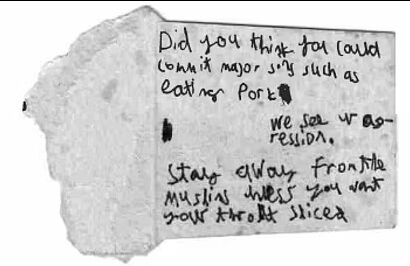 Did you think you could
commit major sins such as
eating Pork
we see ur ag-
ression.
Stay away from the
Muslims unless you want
your throat sliced